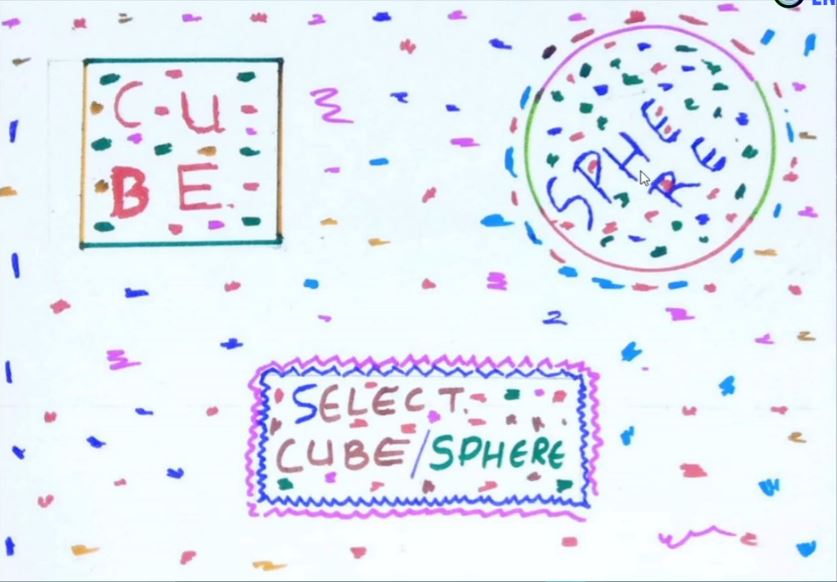 CU
BE
SPHERE
SELECT
CUBE/SPHERE
EN